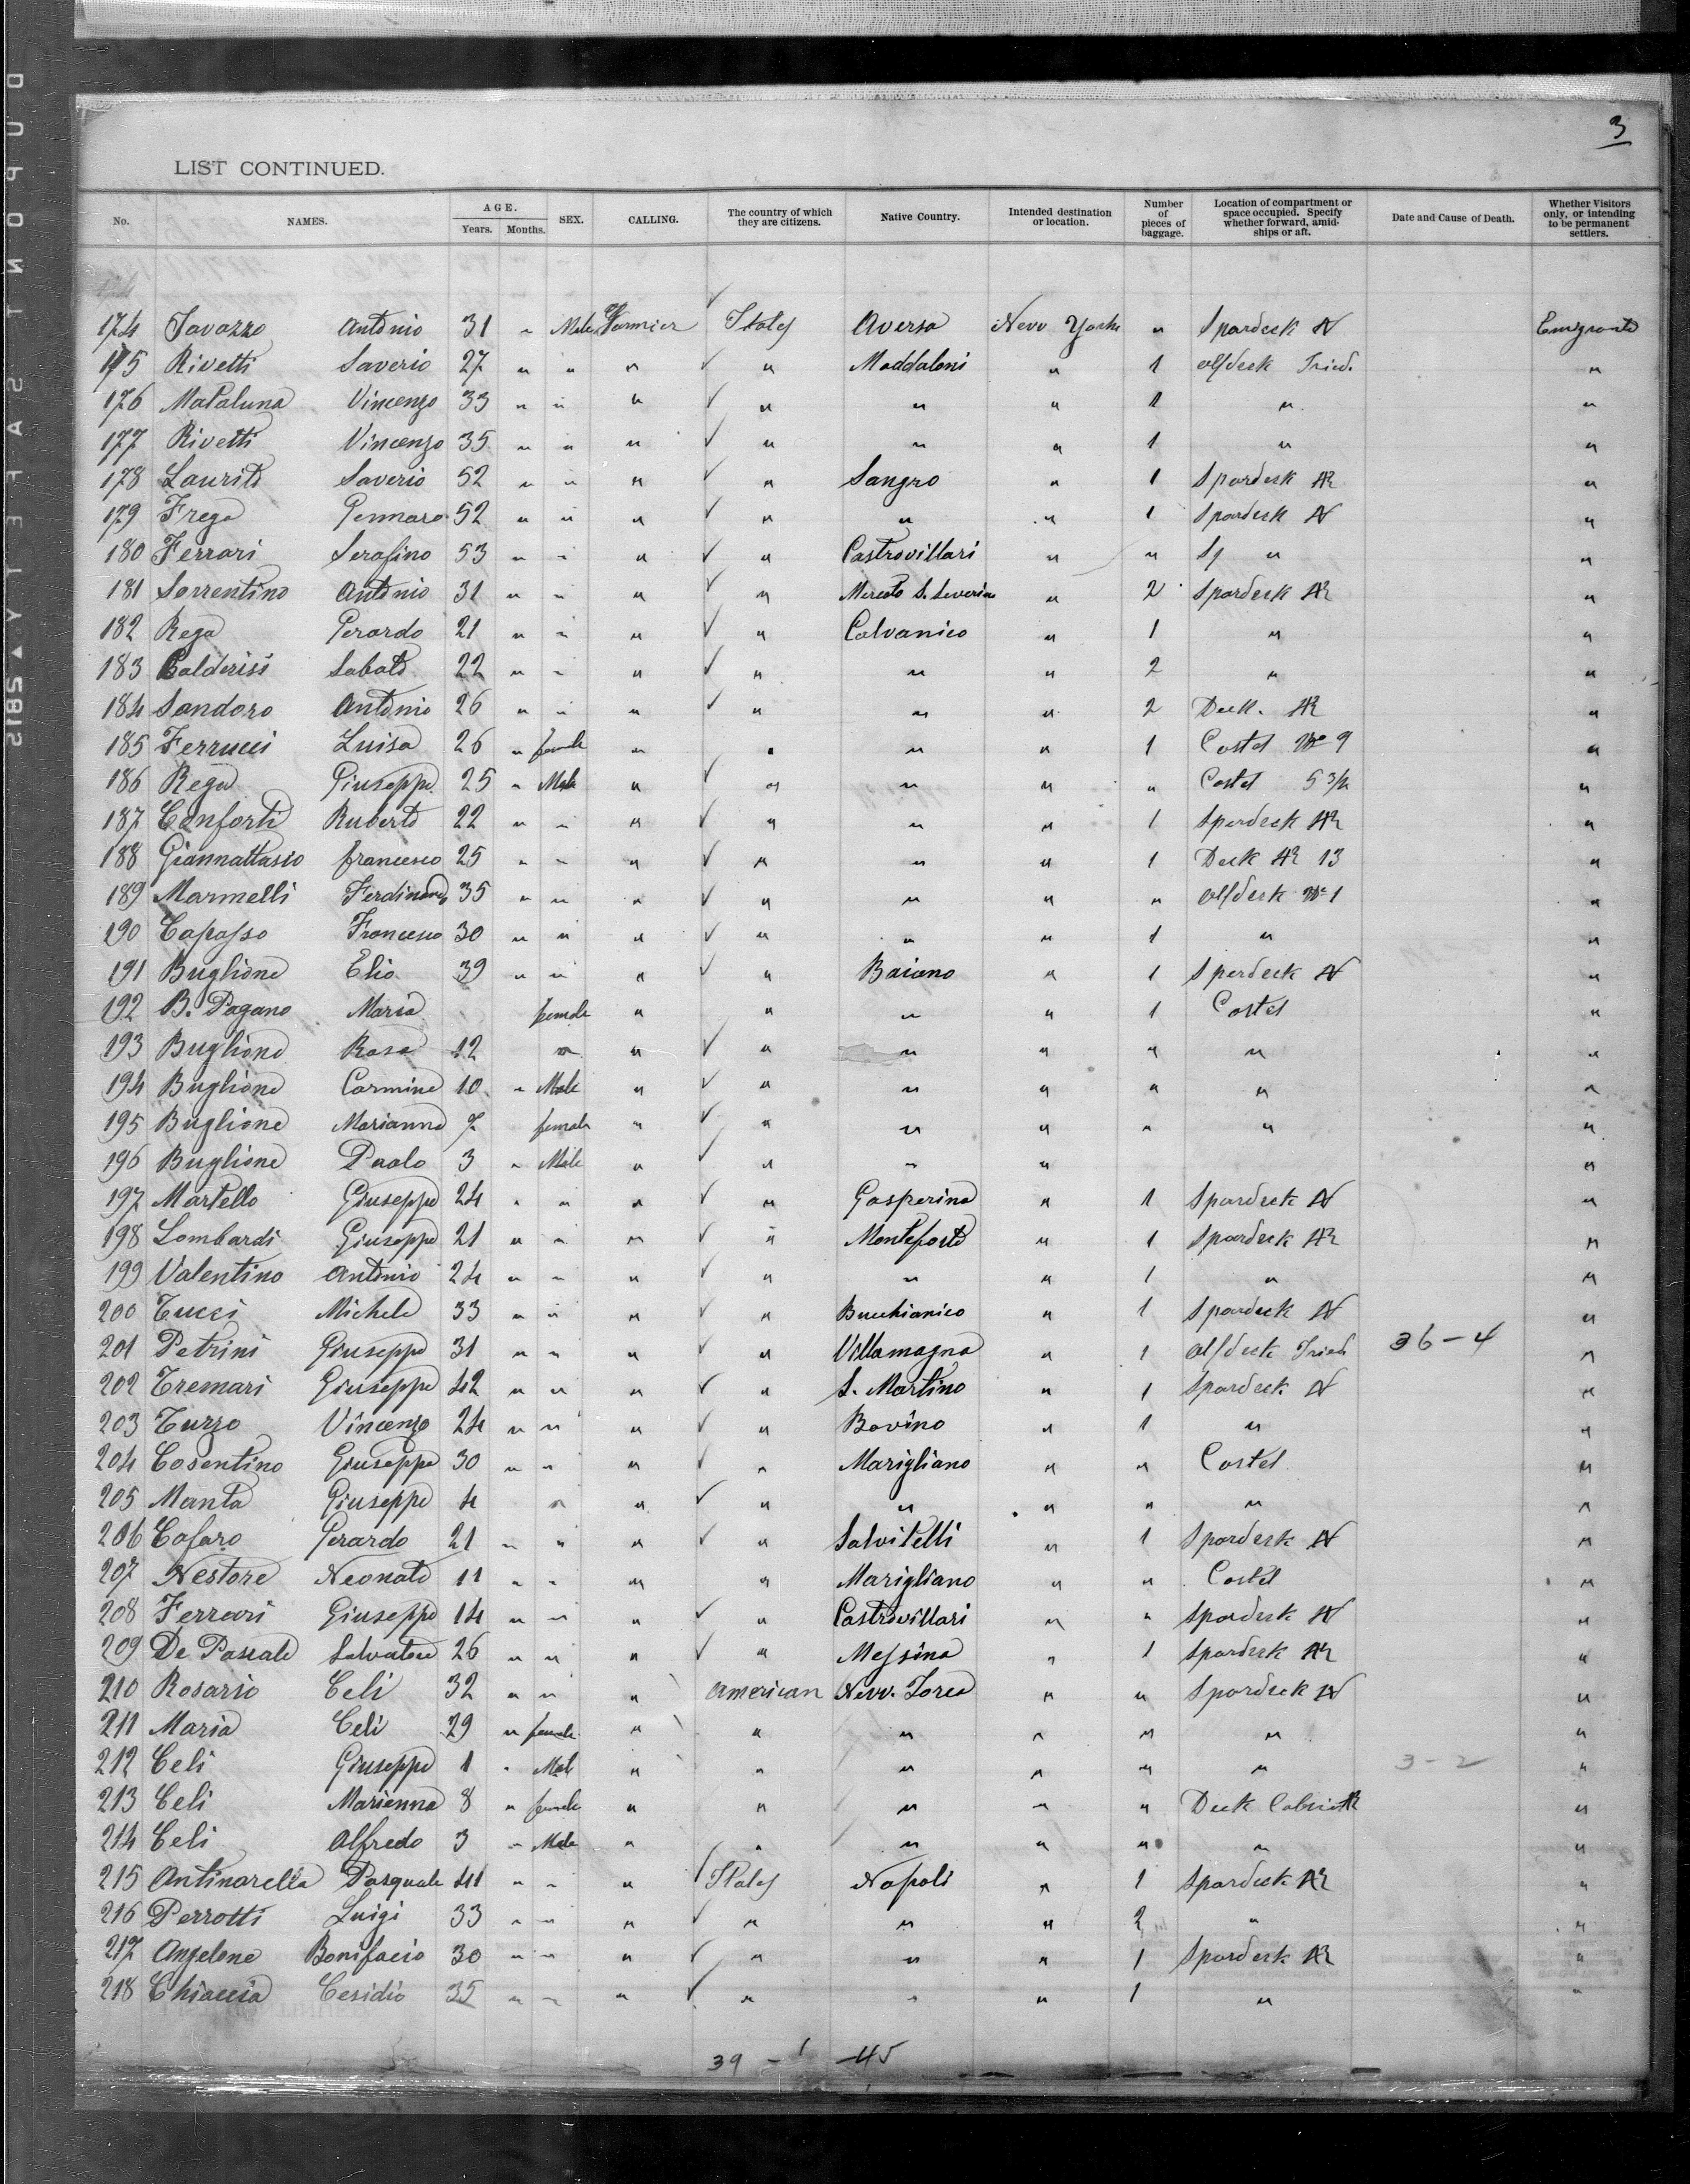 3
LIST CONTINUED.
No. NAMES. AGE. Years. Months. SEX. CALLING. The country of which they are citizens. Native Country. Intended destination or location. Number of pieces of baggage. Location of compartment or space occupied. Specify whether forward, amidships or aft. Date and Cause of Death. Whether Visitors only, or intending to be permanent settlers.
174 Antonio 31 " Male Farmier Italy Aversa New York " Spardeck N Emigrants
175 Rivetti Saverio 27 " " " ✓ " Maddaloni " 1 "
176 Mataluna Vincenzo 33 " " " ✓ " " " 1 " "
177 Rivetti Vincenzo 35 " " " ✓ " " " 1 " "
178 Laurito Saverio 52 " " " ✓ " Sangro " 1 Spardeck "
179 Frega Gennaro 52 " " " ✓ " " " 1 Spardeck N "
180 Ferrari Serafino 53 " " " ✓ " Castrovillari " " Sp " "
181 Sorrentino Antonio 31 " " " ✓ " Mercato S. Severino " 2 Spardeck "
182 Rega Gerardo 21 " " " ✓ " Calvanico " 1 " "
183 Calderisi Sabato 22 " " " ✓ " " " 2 " "
184 Sandoro Antonio 26 " " " ✓ " " " 2 Deck. "
185 Ferrucci Luisa 26 " female " " " " 1 Castel No 9 "
186 Rega Giuseppe 25 " Male " ✓ " " " " Castel "
187 Conforti Ruberto 22 " " " ✓ " " " 1 Spardeck "
188 Giannattasio francesco 25 " " " ✓ " " " 1 Deck 13 "
189 Marmelli Ferdinando 35 " " " ✓ " " " " No 1 "
190 Capasso Francesco 30 " " " ✓ " " " 1 " "
191 Buglione Elia 39 " " " ✓ " Baiano " 1 Spardeck N "
192 B. Pagano Maria female " " " " 1 Castel "
193 Buglione Rosa 12 " " ✓ " " " " " "
194 Buglione Carmine 10 " Male " ✓ " " " " " "
195 Buglione Marianna 7 female " ✓ " " " " " "
196 Buglione Paolo 3 " Male " ✓ " " " "
197 Martello Giuseppe 24 " " " ✓ " Gasperina " 1 Spardeck N "
198 Lombardi Giuseppe 21 " " " ✓ " Monteforte " 1 Spardeck "
199 Valentino Antonio 24 " " " ✓ " " " 1 " "
200 Tucci Michele 33 " " " ✓ " Bucchianico " 1 Spardeck N "
201 Petrini Giuseppe 31 " " " ✓ " Villamagna " 1 36-4 "
202 Tremari Giuseppe 42 " " " ✓ " S. Martino " 1 Spardeck N "
203 Turzo Vincenzo 24 " " " ✓ " Bovino " 1 " "
204 Cosentino Giuseppe 30 " " " ✓ " Marigliano " " Castel "
205 Manta Giuseppe 4 " " ✓ " " " " " "
206 Cafaro Gerardo 21 " " " ✓ " Salvitelli " 1 Spardeck N "
207 Nestore Neonato 11 " " " " Marigliano " " Castel "
208 Ferrari Giuseppe 14 " " " ✓ " Castrovillari " " Spardeck N "
209 De Pascale Salvatore 26 " " " ✓ " Messina " 1 Spardeck "
210 Rosario Celi 32 " " " American " " Spardeck N "
211 Maria Celi 29 " female " " " " " " "
212 Celi Giuseppe 1 " Male " " " " " " 3-2 "
213 Celi Marianna 8 " female " " " " " Deck "
214 Celi Alfredo 3 " Male " " " " " " "
215 Antinarella Pasquale 41 " " " ✓ Italy Napoli " 1 Spardeck "
216 Perrotti Luigi 33 " " " ✓ " " " 2 " "
217 Angelone Bonifacio 30 " " " ✓ " " " 1 Spardeck "
218 Chiaccia Cesidio 35 " " " ✓ " " " 1 " "
39 - 1 -45
DUPONT SAFETY ▲ 2185